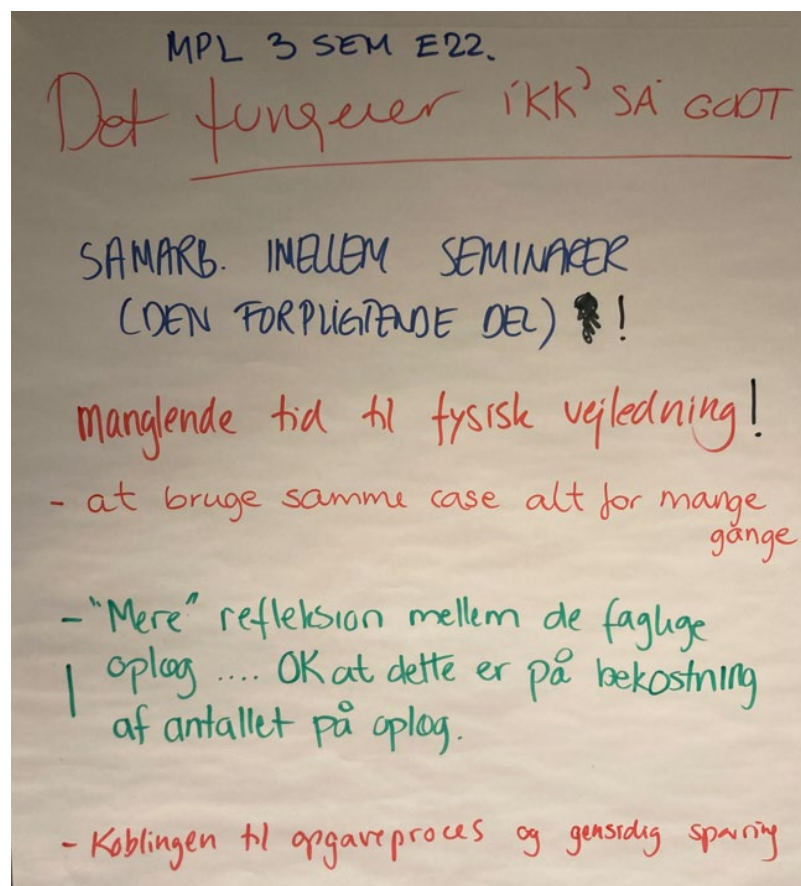 MPL 3 SEM E22.
Det fungerer ikk' SÅ GODT
SAMARB. IMELLEM SEMINARER
(DEN FORPLIGTENDE DEL) !
manglende tid til fysisk vejledning!
- at bruge samme case alt for mange
gange
- "Mere" refleksion mellem de faglige
oplæg .... OK at dette er på bekostning
af antallet på oplæg.
- Koblingen til opgaveproces og gensidig sparring